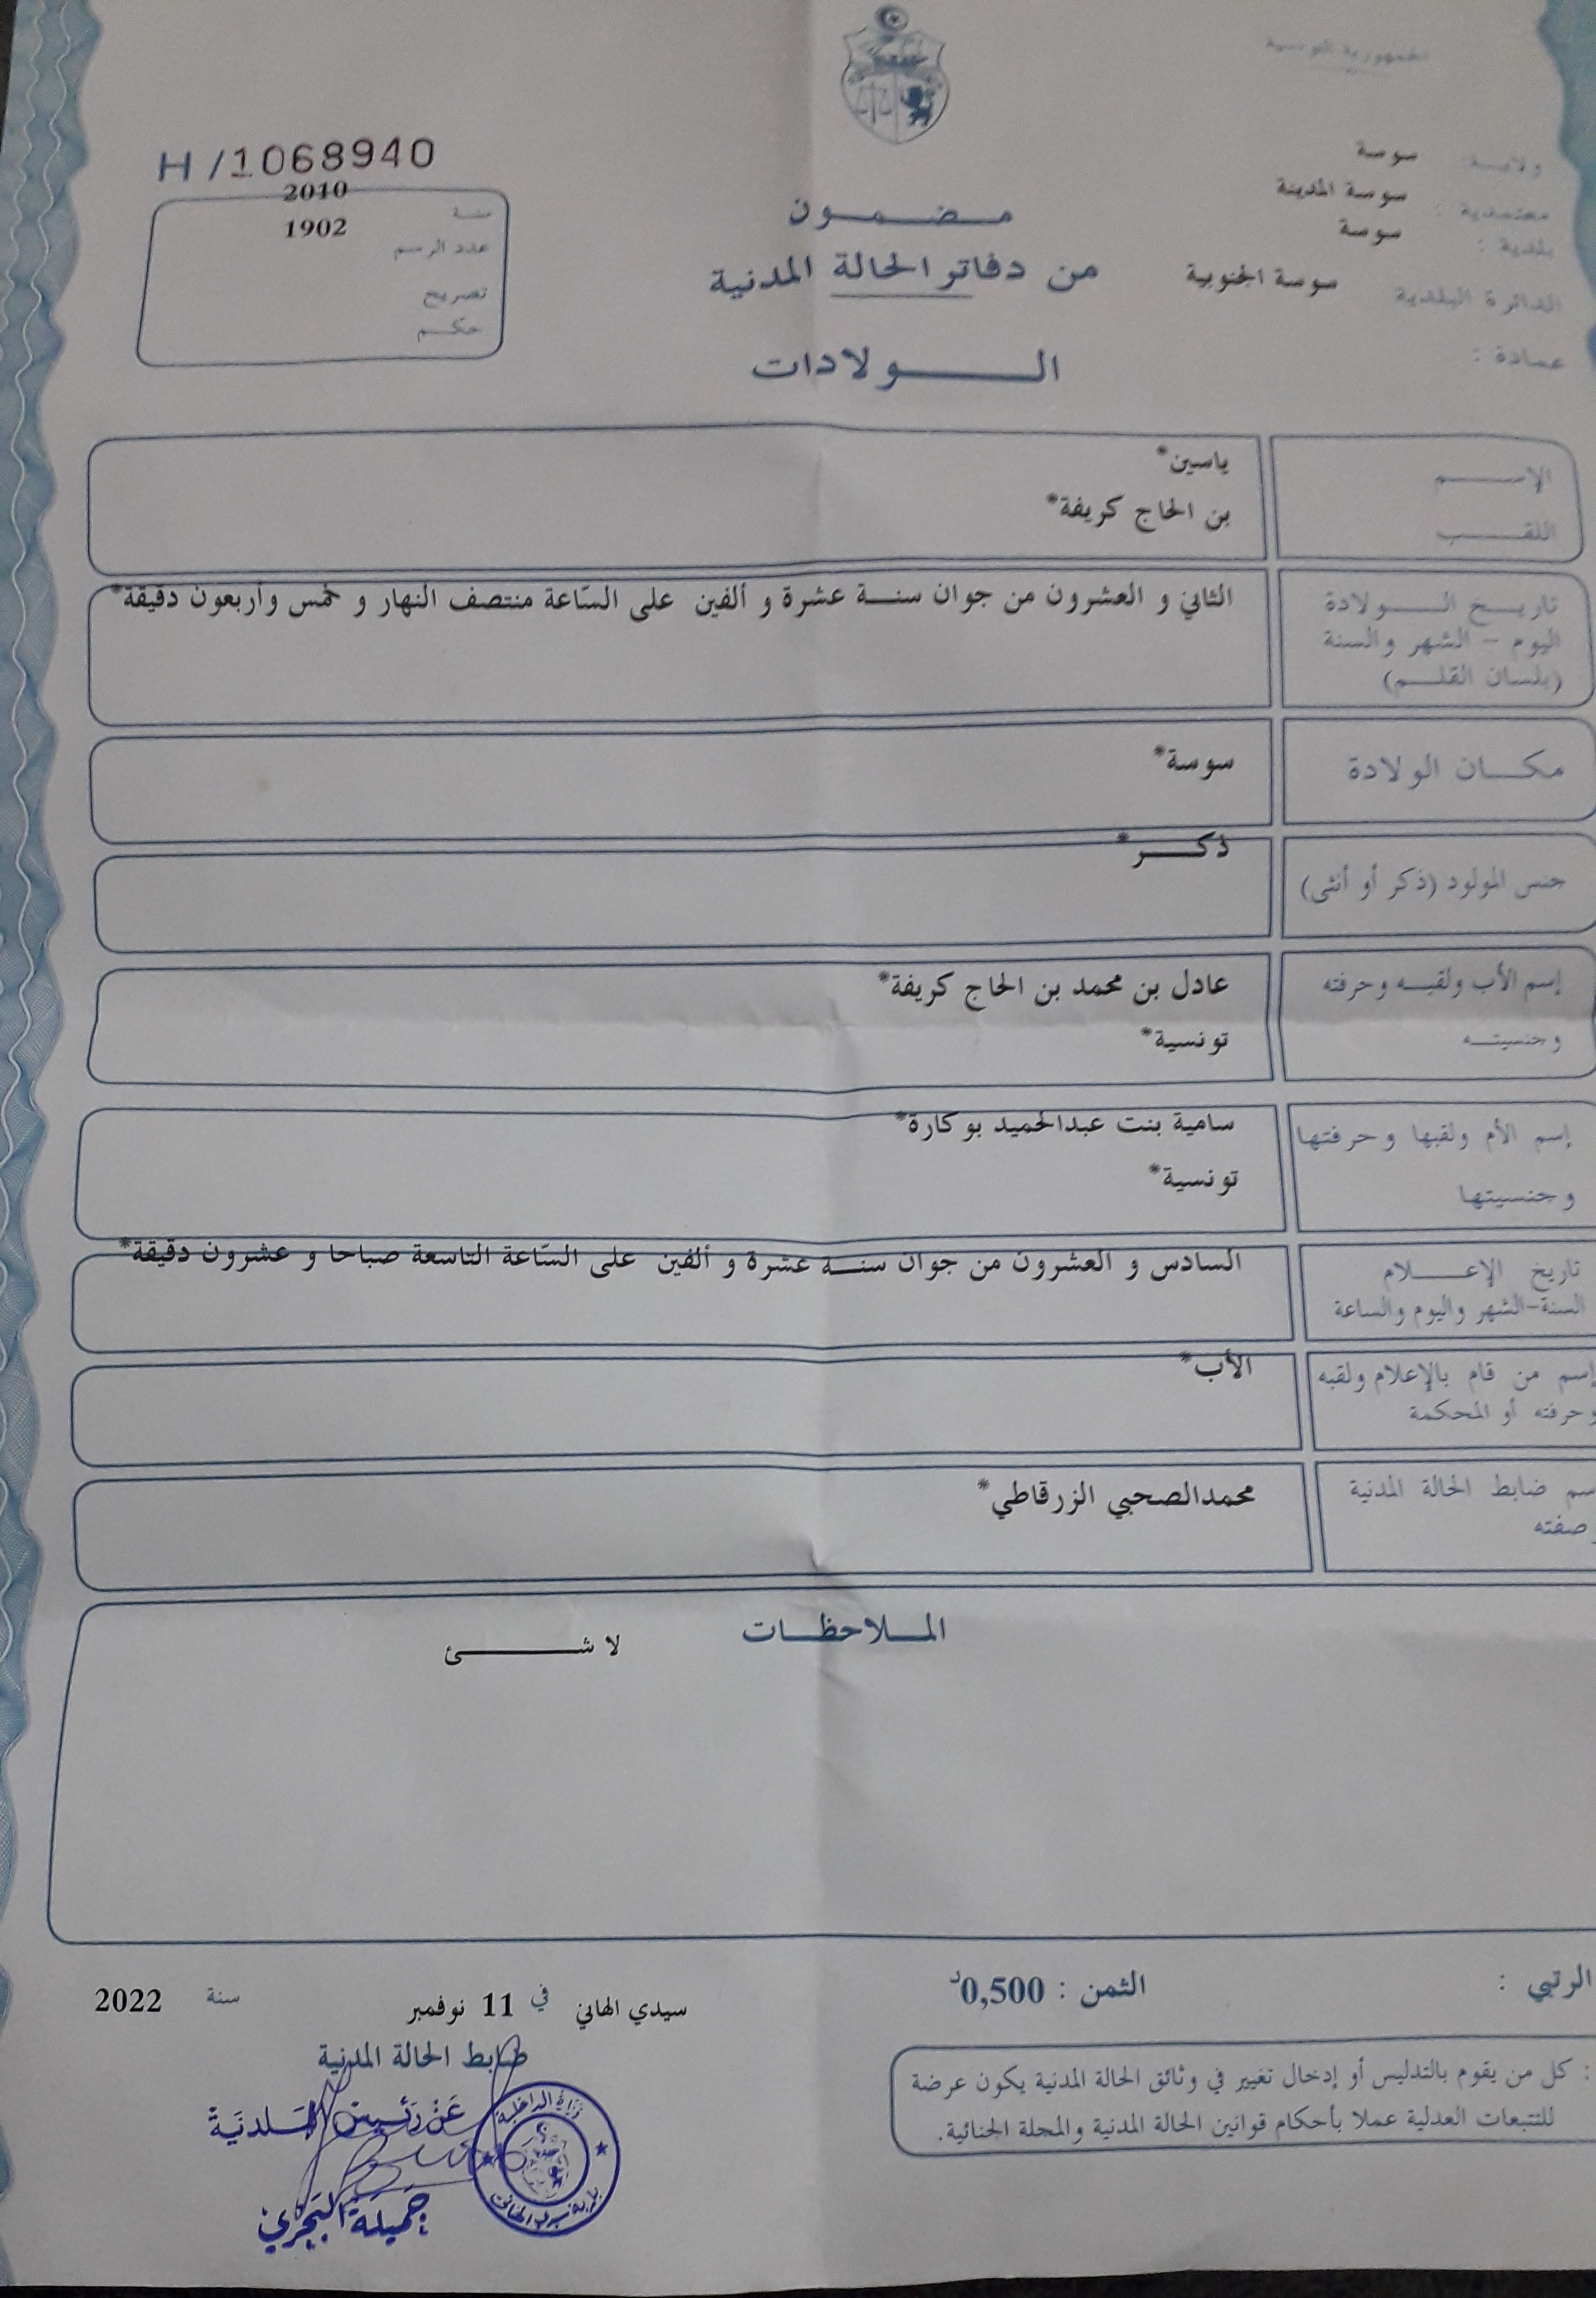 الجمهورية التونسية
ولاية: سوسة
معتمدية: سوسة المدينة
بلدية: سوسة
الدائرة البلدية سوسة الجنوبية
عمادة:
مضمون
من دفاتر الحالة المدنية
الولادات
H/1068940
سنة 2010
عدد الرسم 1902
تصريح
حكم
الإسم ياسين*
اللقب بن الحاج كريفة*
تاريخ الولادة الثاني و العشرون من جوان سنة عشرة و ألفين على السّاعة منتصف النهار و خمس وأربعون دقيقة*
اليوم - الشهر والسنة
(بلسان القلم)
مكان الولادة سوسة*
جنس المولود (ذكر أو أنثى) ذكر*
إسم الأب ولقبه وحرفته عادل بن محمد بن الحاج كريفة*
وجنسيته تونسية*
إسم الأم ولقبها وحرفتها سامية بنت عبدالحميد بوكارة*
وجنسيتها تونسية*
تاريخ الإعلام السادس و العشرون من جوان سنة عشرة و ألفين على السّاعة التاسعة صباحا و عشرون دقيقة*
السنة-الشهر واليوم والساعة
إسم من قام بالإعلام ولقبه الأب*
وحرفته أو المحكمة
سم ضابط الحالة المدنية محمدالصحبي الزرقاطي*
صفته
الملاحظات
لا شئ
الرتبي :
الثمن : 0,500د
سيدي الهاني في 11 نوفمبر سنة 2022
ضابط الحالة المدنية
عن رئيس البلدية
جميلة البحري
وزارة الداخلية
بلدية سيدي الهاني
: كل من يقوم بالتدليس أو إدخال تغيير في وثائق الحالة المدنية يكون عرضة
للتتبعات العدلية عملا بأحكام قوانين الحالة المدنية والمجلة الجنائية.